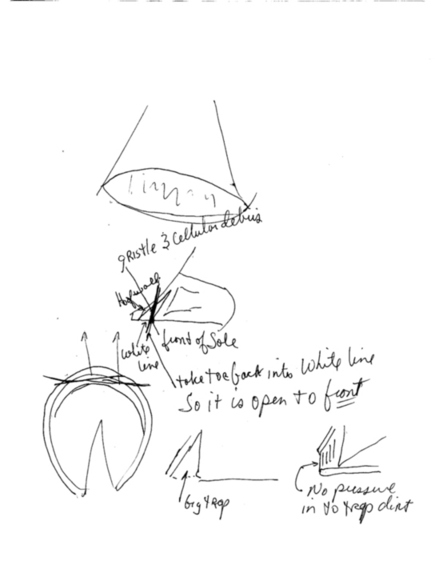 gristle & Cellular debris
Hoofwall
White line
front of Sole
take toe back into White line
So it is open to front
big gap
No pressure
in to trap dirt